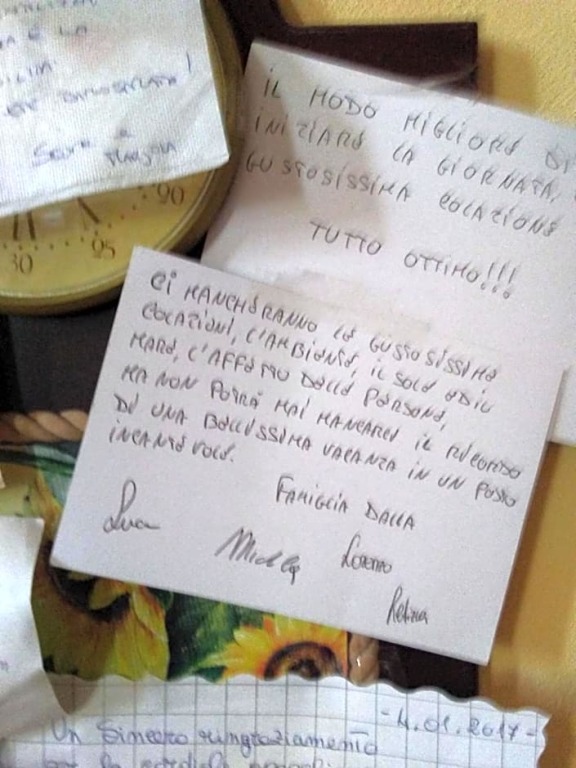 E LA
SEVIM E
IL MODO MIGLIORE DI
INIZIARE LA GIORNATA,
GUSTOSISSIMA COLAZIONE
TUTTO OTTIMO!!!
20
25
30
CI MANCHERANNO LE GUSTOSISSIME
COLAZIONI, L'AMBIENTE, IL SOLE ED IL
MARE, L'AFFETTO DELLE PERSONE,
MA NON POTRÀ MAI MANCARCI IL RICORDO
DI UNA BELLISSIMA VACANZA IN UN POSTO
INCANTEVOLE.
FAMIGLIA DALLA
Luca
Lorenzo
-4.01.2017-
Un sincero ringraziamento